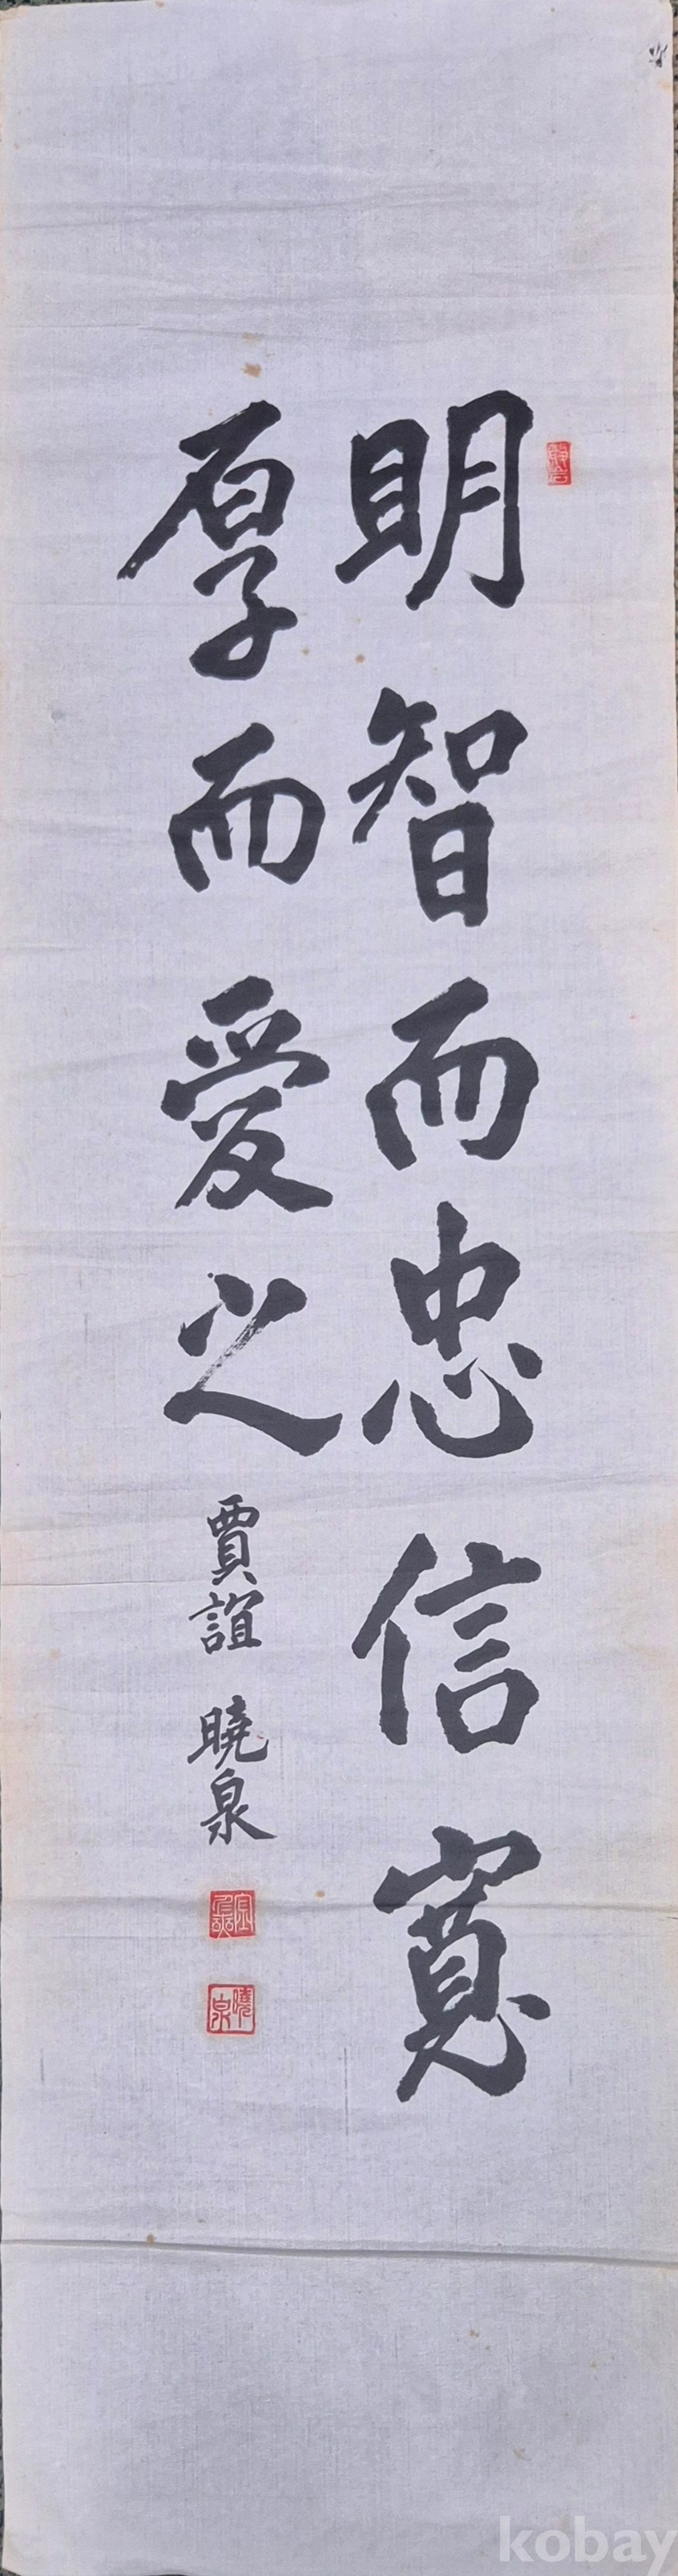 明智而忠信寬
厚而愛之
賈誼 曉泉
曉泉
kobay